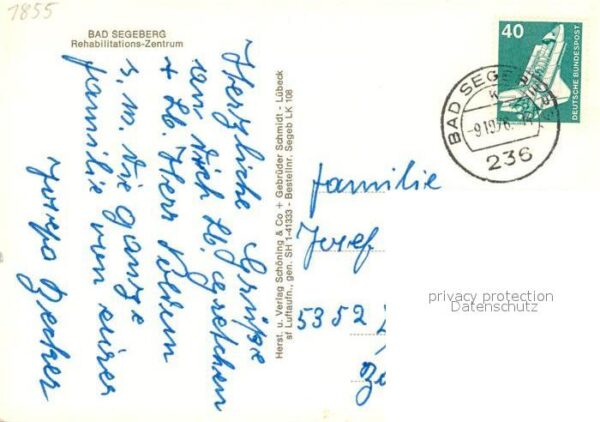 1855
BAD SEGEBERG
Rehabilitations-Zentrum
Herzliche Grüße
Dich Lb. Gretchen
+ Lb. Herr
s. m. die ganze
familie von eurer
Becker
Herst. u. Verlag Schöning & Co + Gebrüder Schmidt - Lübeck
sf Luftaufn., gen. SH 1-41333 - Bestellnr. Segeb LK 108
40
DEUTSCHE BUNDESPOST
BAD SEGEBERG
236
familie
Josef
5352
privacy protection
Datenschutz